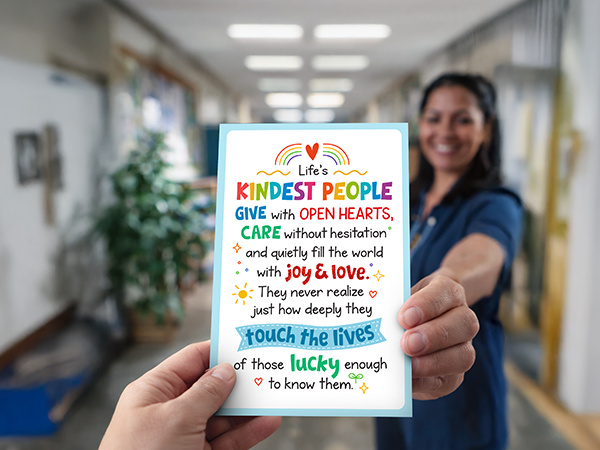 Life's
KINDEST PEOPLE
GIVE with OPEN HEARTS,
CARE without hesitation
and quietly fill the world
with joy & love.
They never realize
just how deeply they
touch the lives
of those lucky enough
to know them.